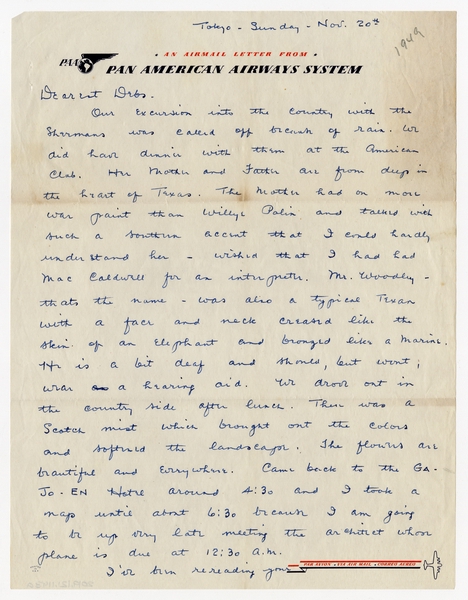 Tokyo - Sunday - Nov. 20th
1949
PAA
• AN AIRMAIL LETTER FROM •
PAN AMERICAN AIRWAYS SYSTEM
Dearest Debs.
Our Excursion into the country with the
Shermans was called off because of rain. We
did have dinner with them at the American
Club. Her Mother and Father are from deep in
the heart of Texas. The Mother had on more
war paint than Willye Palin and talked with
such a southern accent that I could hardly
understand her - wished that I had had
Mac Caldwell for an interpreter. Mr. Woodley -
thats the name - was also a typical Texan
with a face and neck creased like the
skin of an Elephant and bronzed like a Marine.
He is a bit deaf and should, but wont,
wear a hearing aid. We drove out in
the country side after lunch. There was a
Scotch mist which brought out the colors
and softened the landscape. The flowers are
beautiful and Everywhere. Came back to the GA-
JO-EN Hotel around 4:30 and I took a
nap until about 6:30 because I am going
to be up very late meeting the architect whose
plane is due at 12:30 A.M.
I've been rereading your
PAR AVION • VIA AIR MAIL • CORREO AEREO